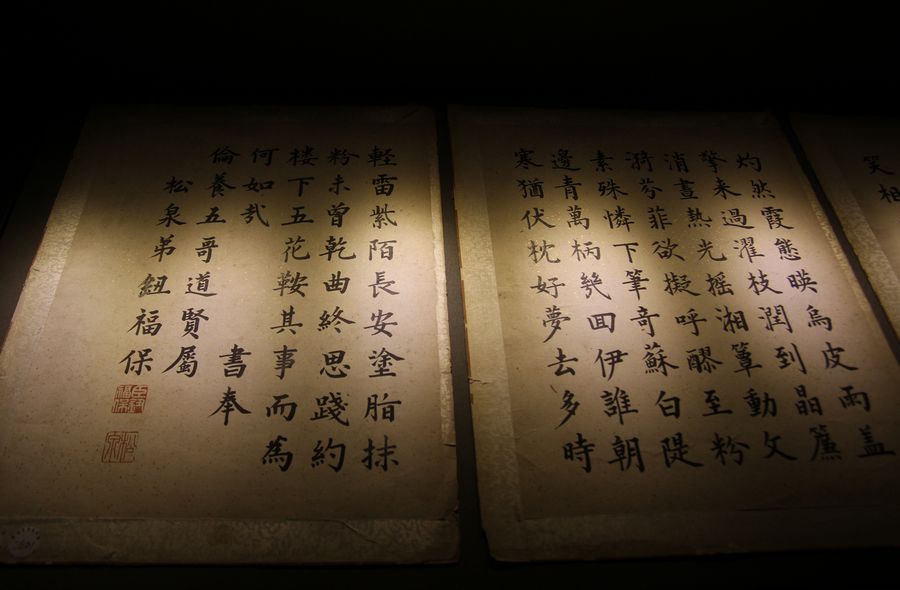 笑相
灼然霞態暎烏皮雨蓋
擎来過濯枝潤到晶簾
消晝熱光摇湘簟動文
漪芬菲欲擬呼醪至粉
素殊憐下筆奇蘇白隄
邊青萬柄幾回伊誰朝
寒猶伏枕好夢去多時
輕雷紫陌長安塗脂抹
粉未曽乾曲終思踐約
楼下五花鞍其事而為
何如哉 書奉
倫養五哥道賢屬
松泉弟鈕福保